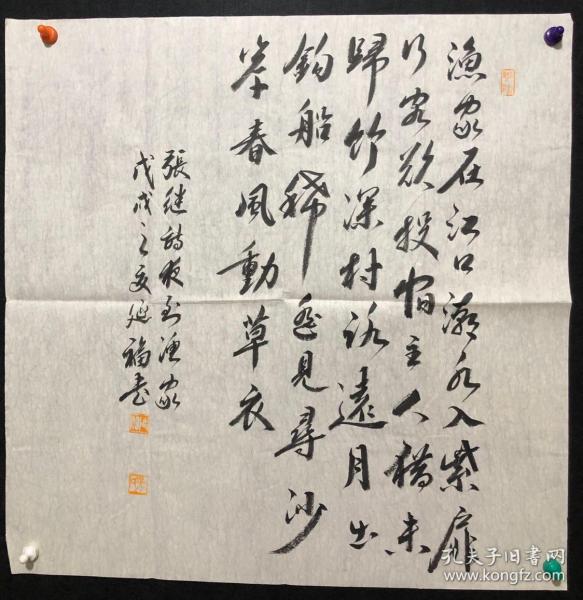 渔家在江口潮水入柴扉
行客欲投宿主人犹未
歸竹深村路遠月出
釣船稀遥見尋沙
岸春風動草衣
張继詩夜到渔家
戊戌之夏延福书
孔夫子旧书网
www.kongfz.com